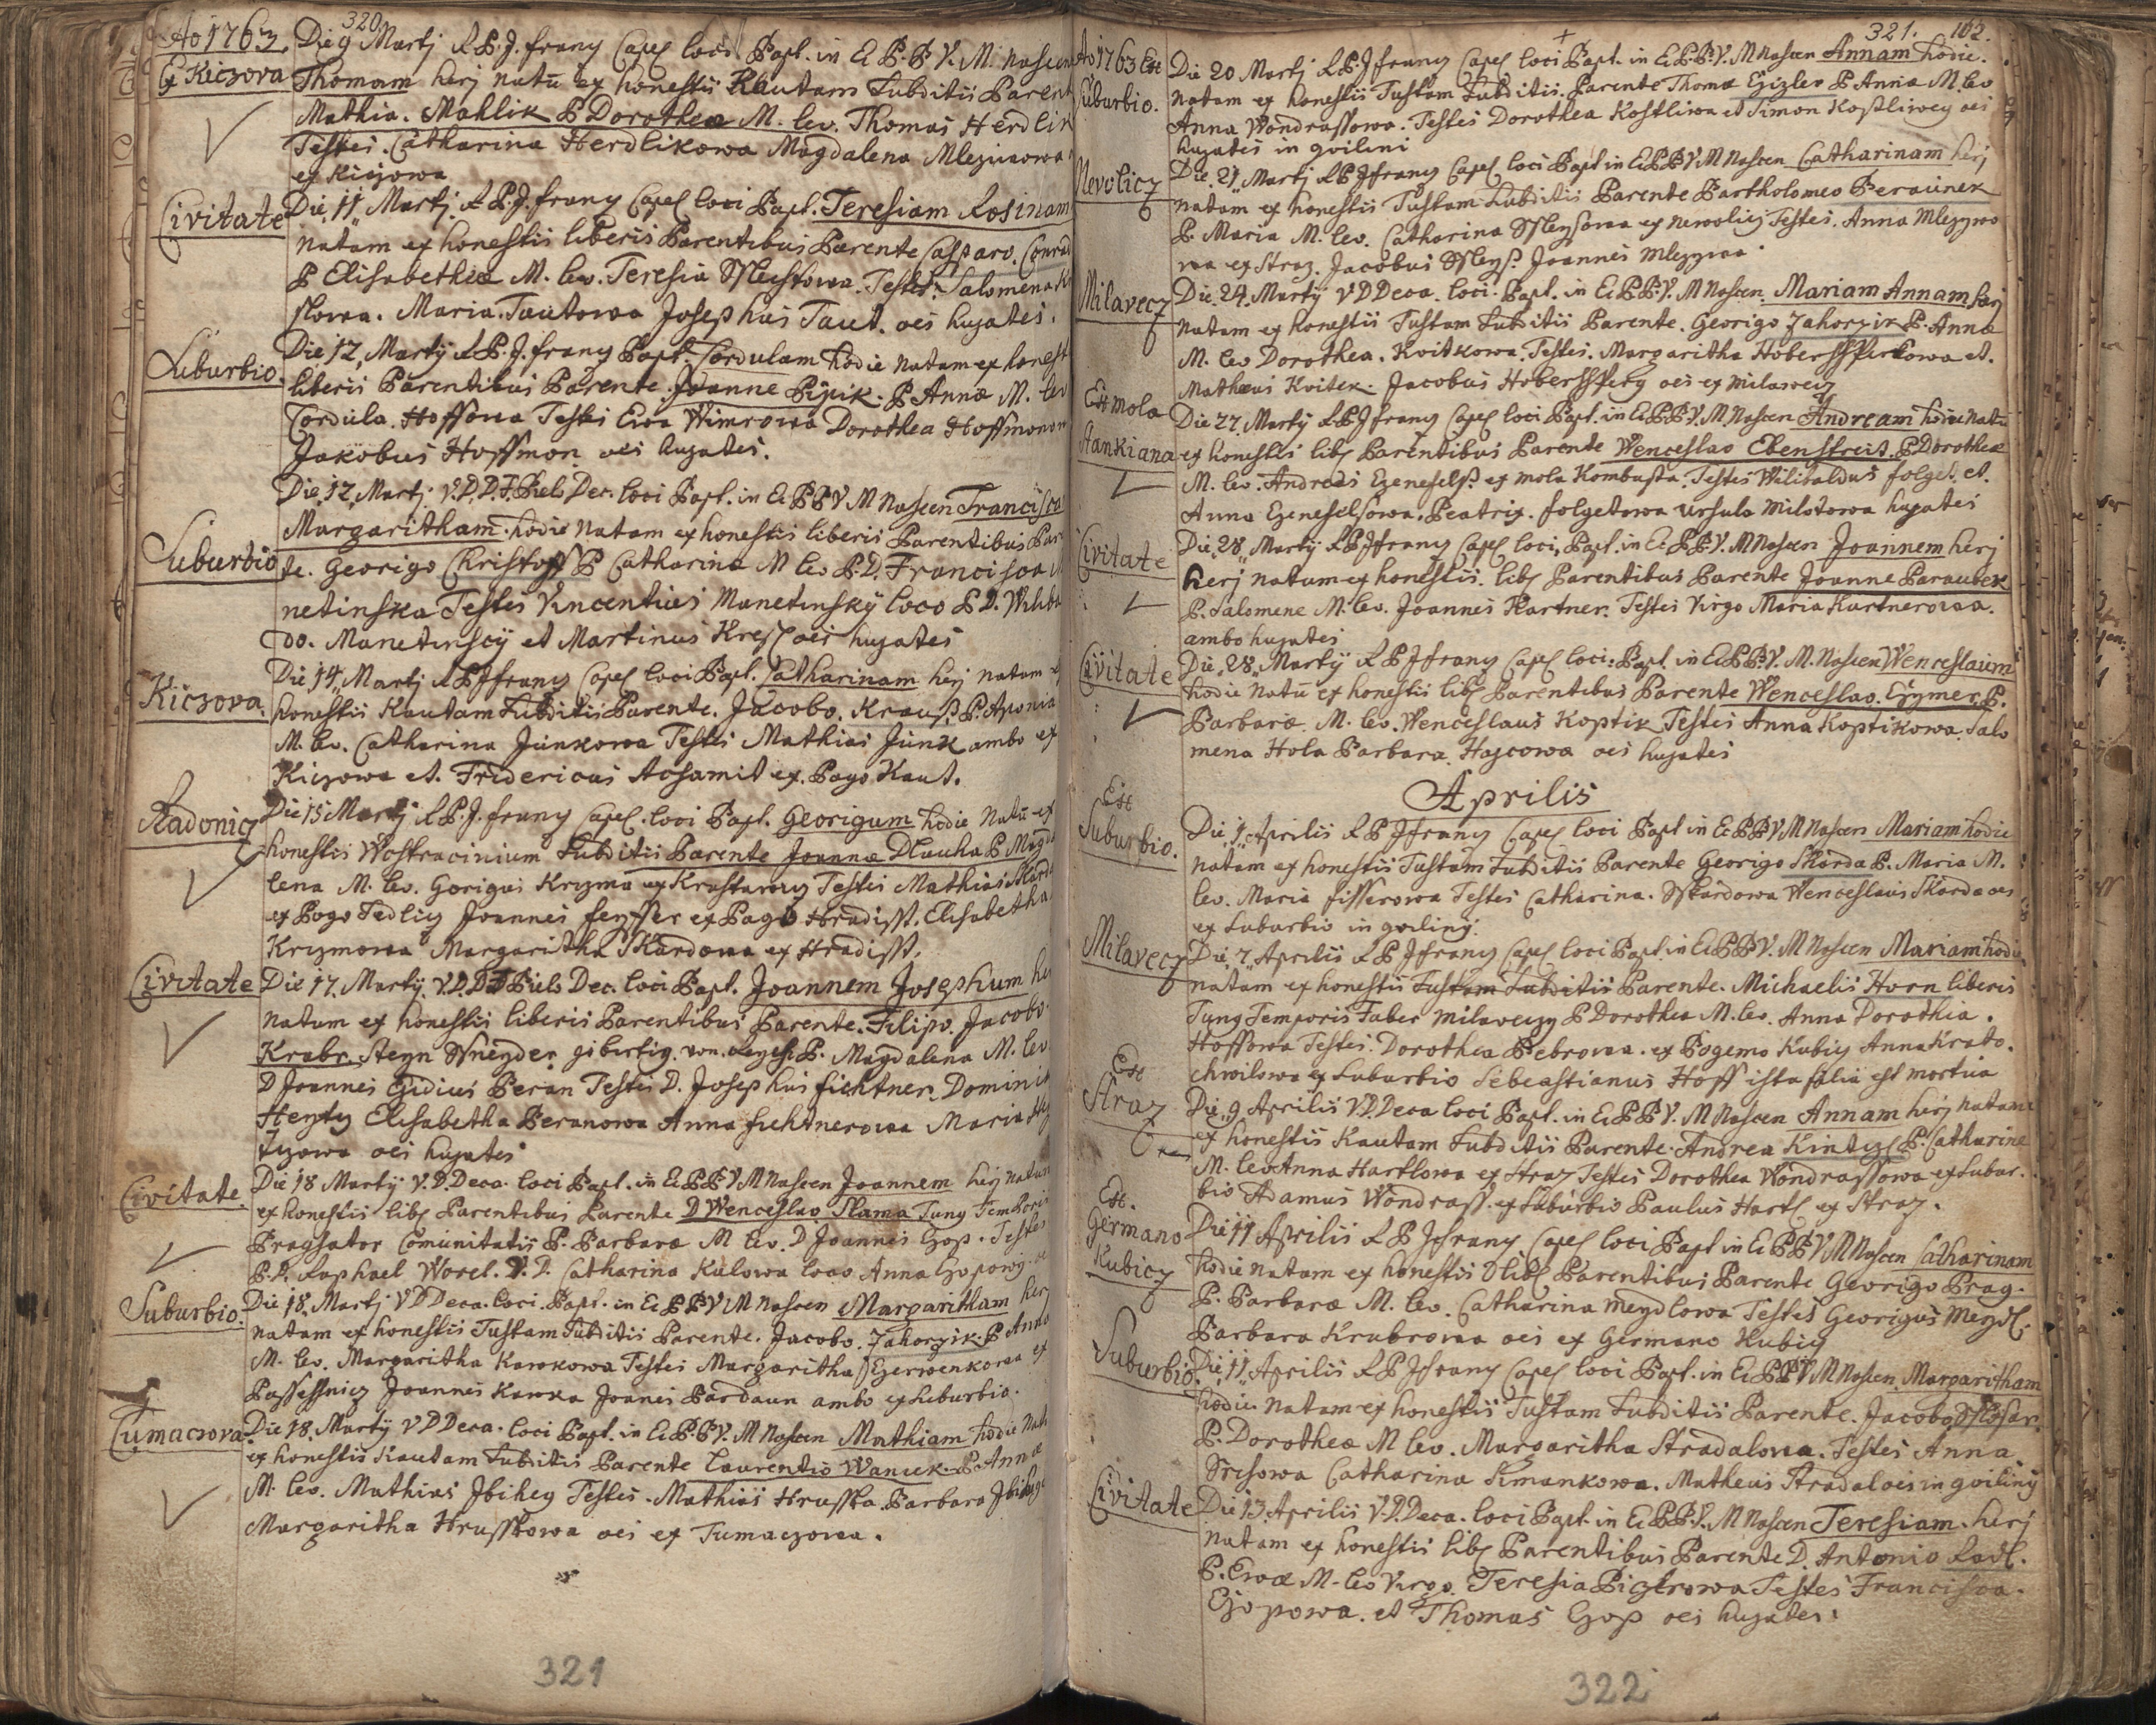 320
Ao 1763.
Ex Kiczova
Die 9 Martj R.P.J. frany Capel. loci Bapt. in Ec P.B.V.M. nascen
Thomam herj natu ex honestis Kautam Subditis Parent
Mathia. Mahlik P Dorothea M. lev. Thomas Herdlik
Testes. Catharina Herdlikowa Magdalena Mleziwowa
ex Kiczowa
Civitate
Die 11 Martj R.P.J. frany Capel loci Bapt. Teresiam Rosinam
natam ex honestis liberis Parentibus Parente Casparo. Conrad
P Elisabethæ M. lev. Teresia Teste Salomena
slowa. Maria. Tautowa Josephus Taut. oes hujates.
Suburbio.
Die 12, Martij R.P.J. frany Bapt. Cordulam hodie natam ex honest
liberis Parentibus Parente. Joanne Pipik. P Annæ M. lev
Cordula. Hoffova Testes Ewa Wimrowa Dorothea Hoffmonow
Jakobus Hoffmon oes hujates.
Suburbio
Die 12, Martj. V.D.D.J. Piels Dec. loci Bapt. in Ec P.B.V.M Nascen Francisca
Margaritham. hodie natam ex honestis liberis Parentibus Par
te. Georigo Christoff P Catharina M lev P.D. Francisca M
netinska Testes Vincentius Manetinskÿ loco P.D. Wilba
do. Manetinscÿ et Martinus Kresl oes hujates
Kiczova.
Die 14 Martj R.P.J frany Capel loci Bapt. Catharinam herj natam e
honestis Kautam Subditis Parente. Jacobo. Krauss P. Aponia
M. lev. Catharina Junkowa Testes Mathias Junk ambo ex
Kiczowa et. Fridericus Acsamit ex. Pago Kaut.
Radonicz
Die 15 Martj R.P.J. frany Capel. loci Bapt. Georigum hodie natu ex
honestis Wostracinium Subditis Parente Joanne Dlauha P Magda
lena M. lev. Gorigus Kryzma ex Krastawiz Testes Mathias Skard
ex Pogo Sedliz Joannes feysser ex Pago Hradisst. Elisabetha
Kryzmowa Margaritha Skardowa ex Hradisst.
Civitate
Die 17. Martij. V.D.D.J Piels Dec. loci Bapt. Joannem Josephum he
natum ex honestis liberis Parentibus Parente. Filipo. Jacobo
Krabr. steyn Sneyder gibertig. von. P. Magdalena M. lev
D Joannes Egidius Beran Testes D. Josephus fichtner Dominik
Henty Elisabetha Beranowa Anna fichtnerowa Maria
oes hujates
Civitate.
Die 18 Martij V.D.Deca. loci Bapt. in Ec P.B.V M Nascen Joannem herj natum
ex honestis lib. Parentibus Parente D Wenceslao Slama Tunz Temporis
Pragsator Comunitatis P. Barbaræ M lev. D Joannes Czop. Testes
P.D. Raphael Worel. V.D. Catharina Kulowa loco Anna
Suburbio.
Die 18. Martj V D Deca. loci. Bapt. in Ec P.B V M Nascen Margaritham herj
natam ex honestis Tustam Subditis Parente. Jacobo. Zahorzik P Anna
M. lev. Margaritha Kawkowa Testes Margaritha Czerwenkowa ex
Passessnicz Joannes Kawka Joanes Bardaun ambo ex Suburbio.
Tumaczova
Die 18. Martij V D Deca. loci Bapt. in Ec.P.B V. M Nascen Mathiam hodie Nat
ex honestis Kautam Subditis Parente Laurentio Wanick. P Annæ
M. lev. Mathias Jbihey Testes. Mathias Hruska. Barbara
Margaritha Hruskowa oes ex Tumaczowa.
321
321. 162.
Ao 1763 Est
Suburbio.
Die 20 Martj R.P.J frany Capel loci Bapt. in Ec P.B.V.M Nascen Annam hodie.
natam ex honestis Tustam Subditis. Parente Thomæ Gizler P Annæ M. lev
Anna Wondrassowa. Testes Dorothea Kostliwa et Simon Kostliwey oes
hujates in gvilini
Nevolicz
Die 21 Martj R.P.J frany Capel loci Bapt in Ec P.B V M Nascen Catharinam herj
natam ex honestis Tustam Subditis Parente Bartholomeo Beraunek
P. Maria M. lev. Catharina ex newolicz Testes. Anna Mlezywo
wa ex Straz. Jacobus Joannes Mlezywa
Milavecz
Die. 24. Martÿ V D Deca. loci. Bapt. in Ec P.B.V. M Nascen. Mariam Annam herj
natam ex honestis Tustam Subditis Parente. Georigo Zahorzik P. Annæ
M. lev Dorothea. Kvitkowa. Testes. Margaritha Hobersspergowa et.
Mathæus Kvitek. Jacobus Hoberssperg oes ex milawecz
Est Mola
Hankiana
Die 27. Martÿ R.P.J frany Capel loci Bapt. in Ec P.B.V. M Nascen Andream hodie natu
ex honestis lib. Parentibus Parente Wenceslao Ebenstreit. P Dorotheæ
M. lev. Andreas ex mola Kombusta. Testes Wilibaldus folget. et.
Anna Beatrix. folgetowa Ursula Milotowa hujates
Civitate
Die. 28. Martÿ R P J frany Capel loci. Bapt. in Ec P.B.V. M Nascen Joannem herj
herj natum ex honestis. lib. Parentibus Parente Joanne Paraubek
P. Salomene M. lev. Joannes Kartner. Testes Virgo Maria Kartnerowa.
ambo hujates
Civitate
Die. 28. Martÿ R P J frany Capel loci. Bapt. in Ec P.B.V. M. Nascen Wenceslaum
hodie natu ex honestis lib. Parentibus Parente Wenceslao. Czymer. P.
Barbaræ. M. lev. Wenceslaus Koptik Testes Anna Koptikowa. Salo
mena Hola Barbara. Haycowa oes hujates
Aprilis
Est
Suburbio.
Die 1. Aprilis R P J frany Capel loci Bapt in Ec P B V M Nascen Mariam hodie
natam ex honestis Tustam Subditis Parente Georigo Skarda P. Maria M.
lev. Maria fisserowa Testes Catharina. Skardowa Wenceslaus Skarda oes
ex Suburbio in gviliny.
Milavecz
Die. 7. Aprilis R P J frany Capel loci Bapt in Ec P B V. M Nascen Mariam hodie
natam ex honestis Tustam Subditis Parente. Michaelis Horn liberis
Tunz Temporis Faber milavezy P Dorothea M. lev. Anna Dorothia.
Hoffowa Testes. Dorothea Bebrowa. ex Pogemo Kubicz Anna Krato.
chwilowa ex Suburbio Sebeastianus Hoff ista filia est mortua
Est
Straz
Die. 9. Aprilis V D. Deca loci Bapt. in Ec P B V. M Nascen Annam herj natam
ex honestis Kautam Subditis Parente. Andrea Kintzl P. Catharinæ
M. lev Anna Hartlowa ex Straz Testes Dorothea Wondrassowa ex Subur.
bio Adamus Wondrass. ex Suburbio Paulus Hartl ex Straz.
Est.
Germano
Kubicz
Die 11 Aprilis R P J frany Capel loci Bapt in Ec P B V M Nascen Catharinam
hodie natam ex honestis lib. Parentibus Parente Georigo Prag.
P. Barbaræ M. lev. Catharina Meydlowa Testes Georigus Meydl.
Barbara Krabrowa oes ex Germano Kubicz
Suburbio.
Die 11. Aprilis R P J frany Capel loci Bapt. in Ec P B V M Nascen. Margaritham
hodie. natam ex honestis Tustam Subditis Parente. Jacobo
P. Dorotheæ M lev. Margaritha Stradalowa. Testes Anna
Srisowa Catharina Simankowa. Matheus Stradal oes in gviliny
Civitate
Die 13. Aprilis V.D. Deca. loci Bapt. in Ec P B.V. M Nascen Teresiam. herj
natam ex honestis lib. Parentibus Parente D. Antonio Radl.
P. Ewæ M. lev Virgo. Teresia Testes Francisca.
Czopowa. et Thomas Czop oes hujates.
322